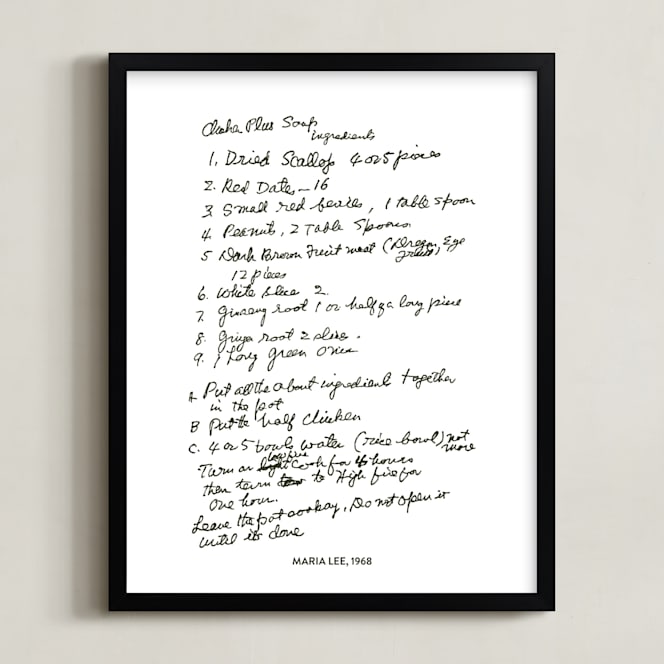 Plus Soup
ingredients
1. Dried Scallop 4 or 5 pieces
2. Red Dates – 16
3. Small red berries, 1 table spoon
4. Peanuts, 2 Table Spoons
5 Dark Brown Fruit meat (Dragon Eye
12 pieces
6. White slice 2.
7. Ginseng root 1 or half of a long piece
8. root 2 slice.
9. 1 Long green Onion
A Put all the about ingredients together
in the pot
B Put the half Chicken
C. 4 or 5 bowls water (rice bowl) not
more
low fire
Turn on Cook for hours
then turn to High fire for
One hour.
Leave the pot , Do not open it
until it's done
MARIA LEE, 1968